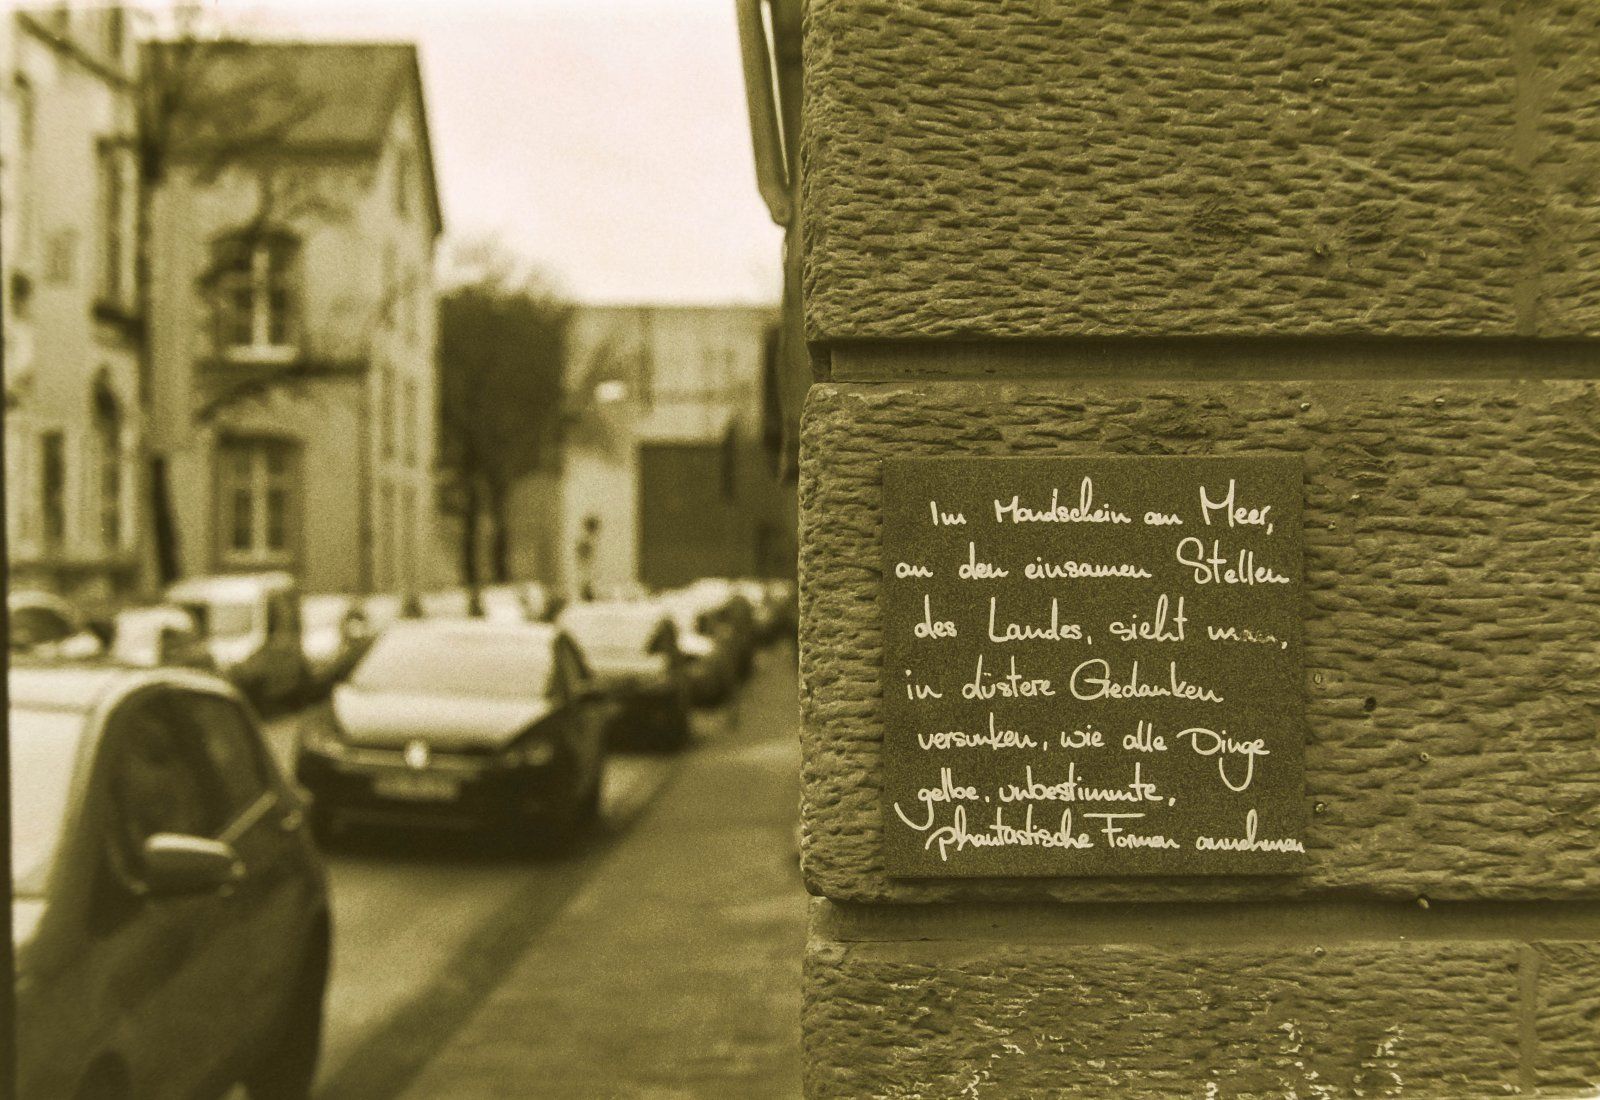 Im Mondschein am Meer,
an den einsamen Stellen
des Landes, sieht man,
in düstere Gedanken
versunken, wie alle Dinge
gelbe, unbestimmte,
phantastische Formen annehmen